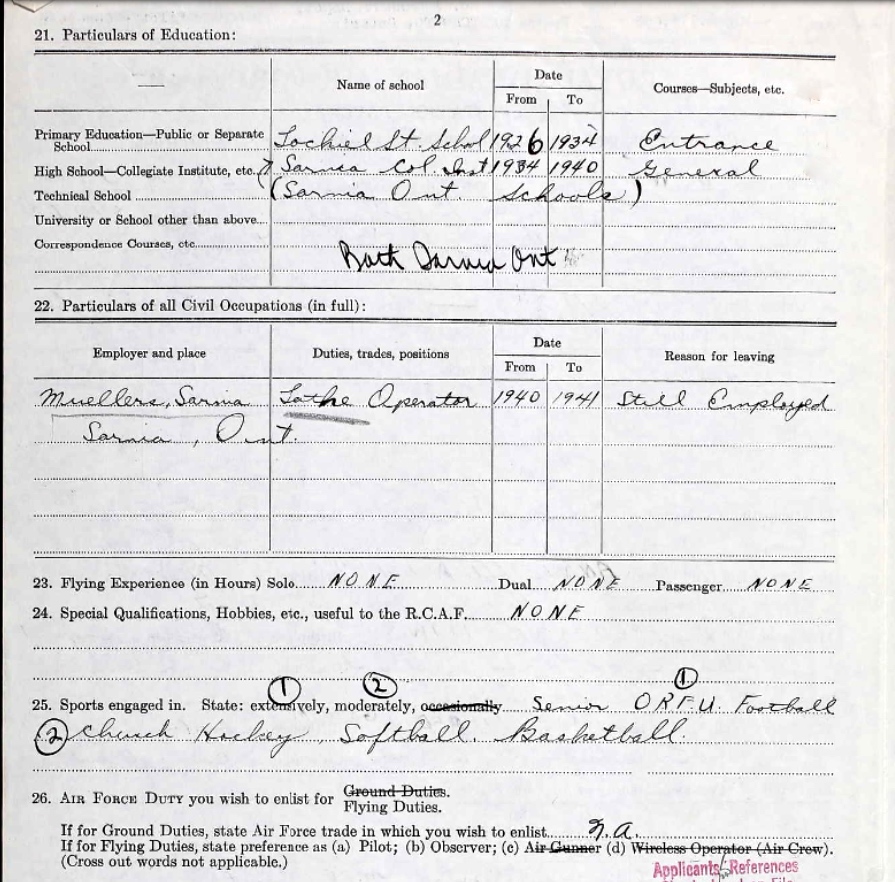 2
21. Particulars of Education:
Name of school
Date
From To
Courses—Subjects, etc.
Primary Education—Public or Separate
School Lochiel St. School 1926 1934 Entrance
High School—Collegiate Institute, etc. Sarnia Col. Inst 1934 1940 General
Technical School (Sarnia Ont. Schools)
University or School other than above
Correspondence Courses, etc.
Both Sarnia Ont
22. Particulars of all Civil Occupations (in full):
Employer and place
Duties, trades, positions
Date
From To
Reason for leaving
Muellers, Sarnia Lathe Operator 1940 1941 Still Employed
Sarnia, Ont.
23. Flying Experience (in Hours) Solo NONE Dual NONE Passenger NONE
24. Special Qualifications, Hobbies, etc., useful to the R.C.A.F. NONE
1 2 1
25. Sports engaged in. State: extensively, moderately, occasionally Senior O.R.F.U. Football
2 Church Hockey, Softball. Basketball.
26. AIR FORCE DUTY you wish to enlist for Ground Duties.
Flying Duties.
If for Ground Duties, state Air Force trade in which you wish to enlist N.A.
If for Flying Duties, state preference as (a) Pilot; (b) Observer; (c) Air Gunner (d) Wireless Operator (Air Crew).
(Cross out words not applicable.)
Applicants References